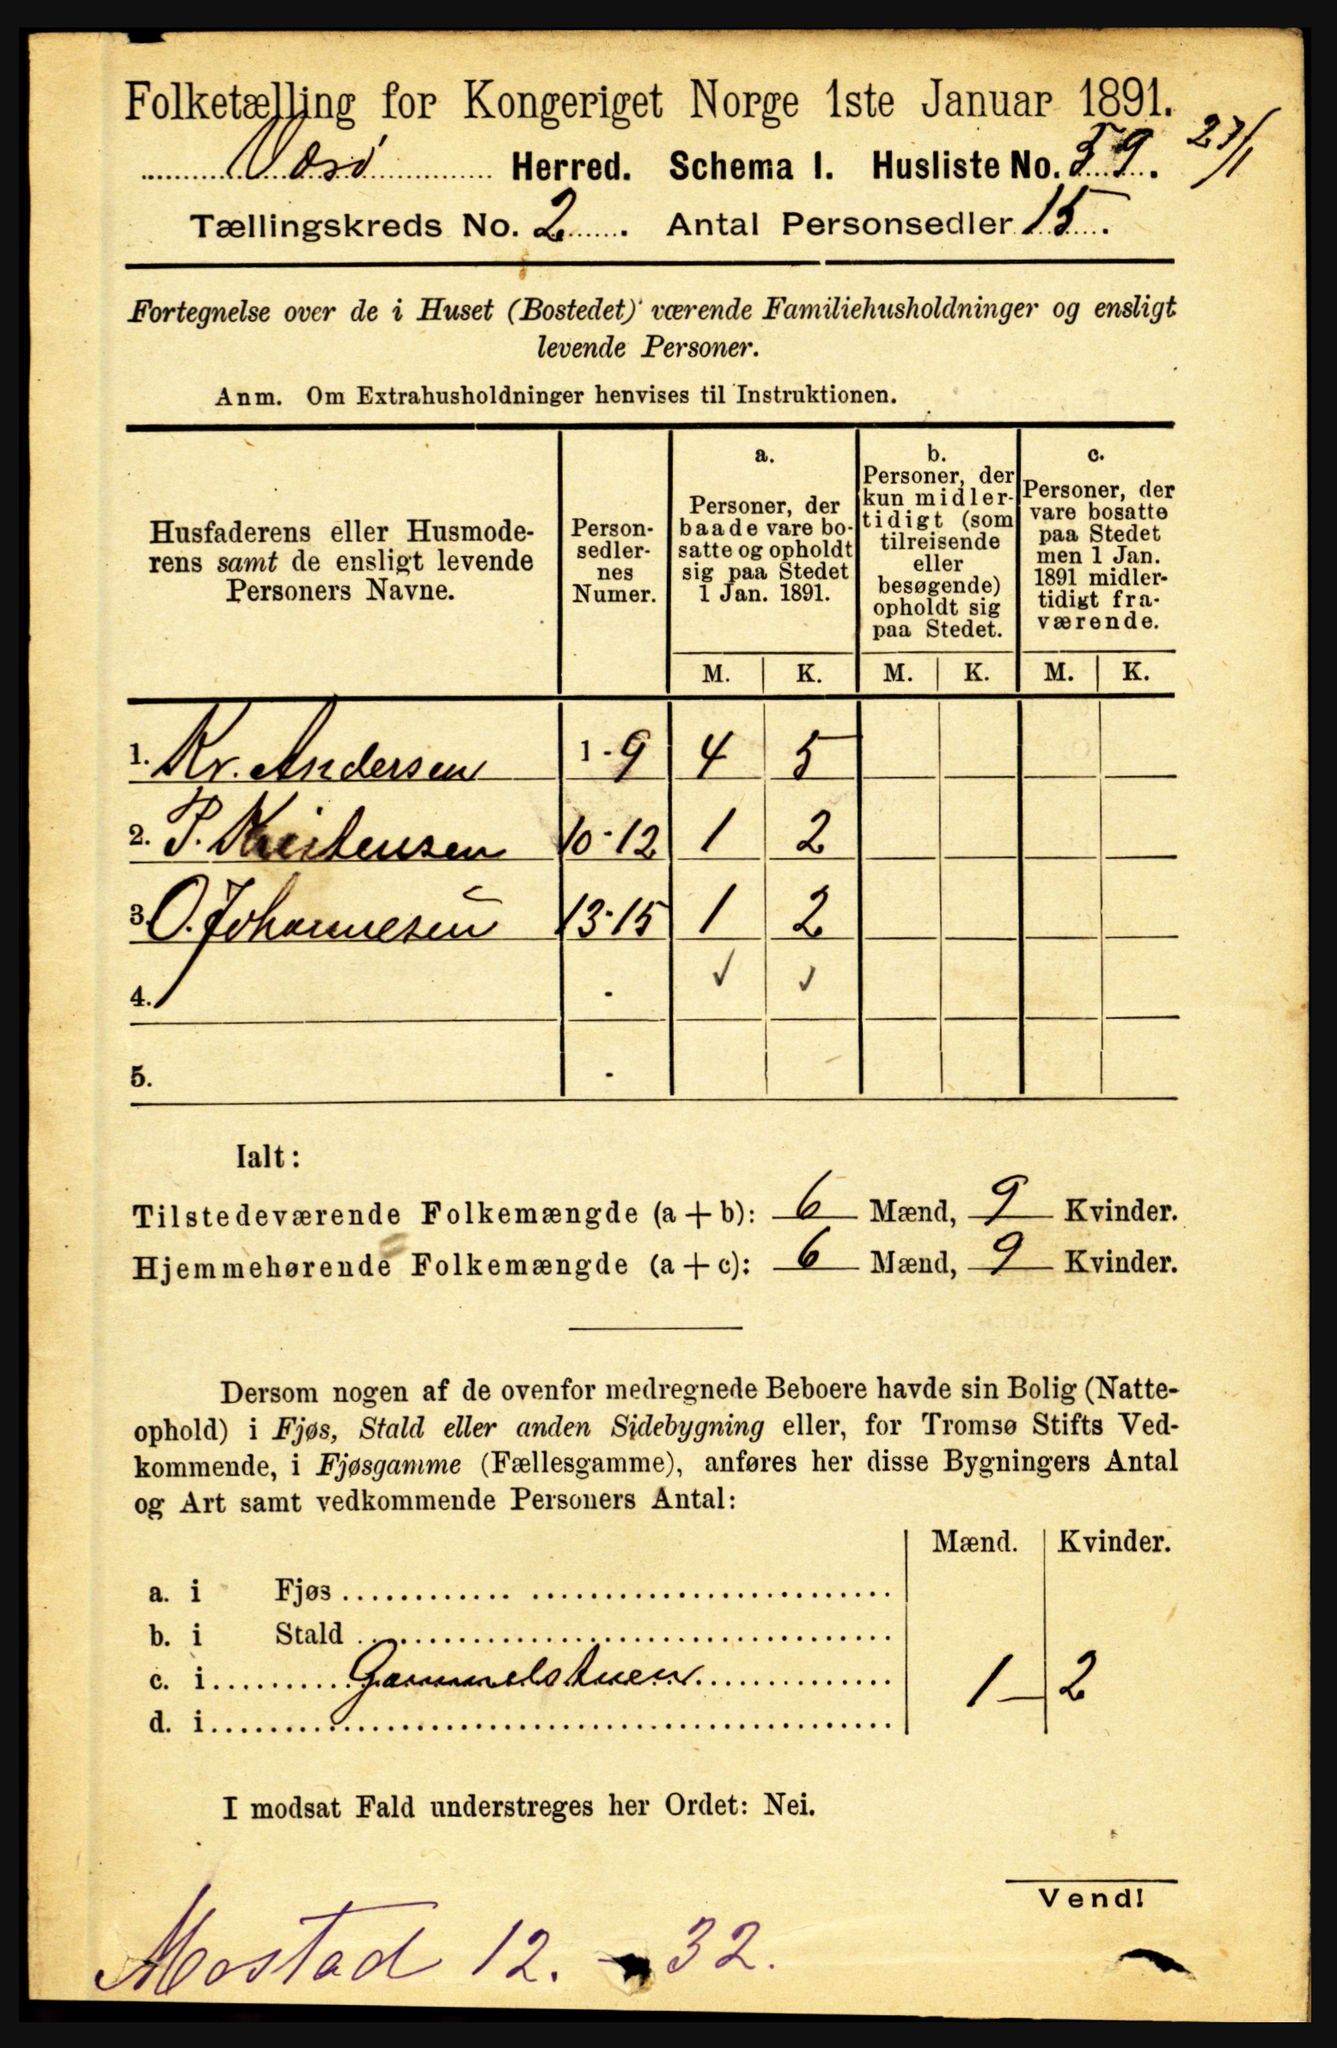 Folketælling for Kongeriget Norge 1ste Januar 1891.
Værø Herred. Schema I. Husliste No. 59. 23/1
Tællingskreds No. 2. Antal Personsedler 15.
Fortegnelse over de i Huset (Bostedet) værende Familiehusholdninger og ensligt
levende Personer.
Anm. Om Extrahusholdninger henvises til Instruktionen.
Husfaderens eller Husmode-
rens samt de ensligt levende
Personers Navne.
Person-
sedler-
nes
Numer.
a.
Personer, der
baade vare bo-
satte og opholdt
sig paa Stedet
1 Jan. 1891.
b.
Personer, der
kun midler-
tidigt (som
tilreisende
eller
besøgende)
opholdt sig
paa Stedet.
c.
Personer, der
vare bosatte
paa Stedet
men 1 Jan.
1891 midler-
tidigt fra-
værende.
M. K. M. K. M. K.
1. Kr. Andersen 1-9 4 5
2. P. Kristensen 10-12 1 2
3. O. Johannesen 13-15 1 2
4. - ✓ ✓
5. -
Ialt:
Tilstedeværende Folkemængde (a + b): 6 Mænd, 9 Kvinder.
Hjemmehørende Folkemængde (a + c): 6 Mænd, 9 Kvinder.
Dersom nogen af de ovenfor medregnede Beboere havde sin Bolig (Natte-
ophold) i Fjøs, Stald eller anden Sidebygning eller, for Tromsø Stifts Ved-
kommende, i Fjøsgamme (Fællesgamme), anføres her disse Bygningers Antal
og Art samt vedkommende Personers Antal:
Mænd. Kvinder.
a. i Fjøs
b. i Stald
c. i Gammelstuen 1 - 2
d. i
I modsat Fald understreges her Ordet: Nei.
Vend!
Mostad 12. - 32.